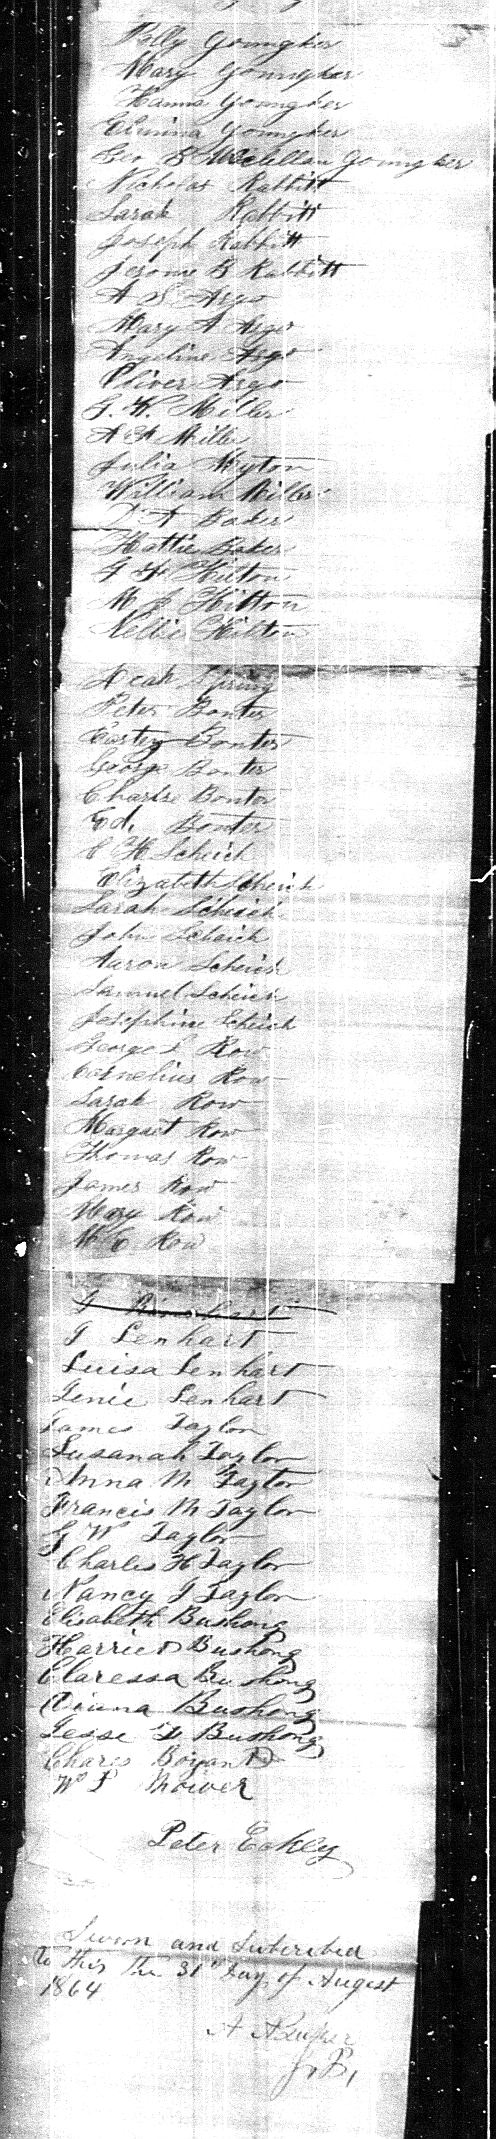 Polly Youngker
Mary Youngker
Hanna Youngker
Elmina Youngker
Geo B McClellan Youngker
Nicholas Rabbitt
Sarah Rabbitt
Joseph Rabbitt
Jerome B Rabbitt
A S Argo
Mary A Argo
Angeline Argo
Oliver Argo
G. W. Miller
A A Miller
Julia Myton
William Miller
T A Baker
Hattie Baker
G H Hilton
M J Hilton
Nellie Hilton
Noah Spring
Peter Bonter
Bonter
George Bonter
Charlse Bonter
Ed. Bonter
C H Scheich
Elizabeth Scheich
Sarah Scheich
John Scheich
Aaron Scheich
Samuel Scheich
Josephine Scheich
George L Row
Cornelius Row
Sarah Row
Margaet Row
Thomas Row
James Row
Mary Row
M C Row
G Rinehart
G Lenhart
Luisa Lenhart
Jenie Lenhart
James Taylor
Susanah Taylor
Anna M Taylor
Francis M Taylor
G W Taylor
Charles H Taylor
Nancy J Taylor
Elisabeth Bushong
Harriet Bushong
Claressa Bushong
Diana Bushong
Jesse D Bushong
Chares Boyant
W L Mower
Peter Eckley
Sworn and Subcribed
to this the 31" day of August
1864
A
J. P.